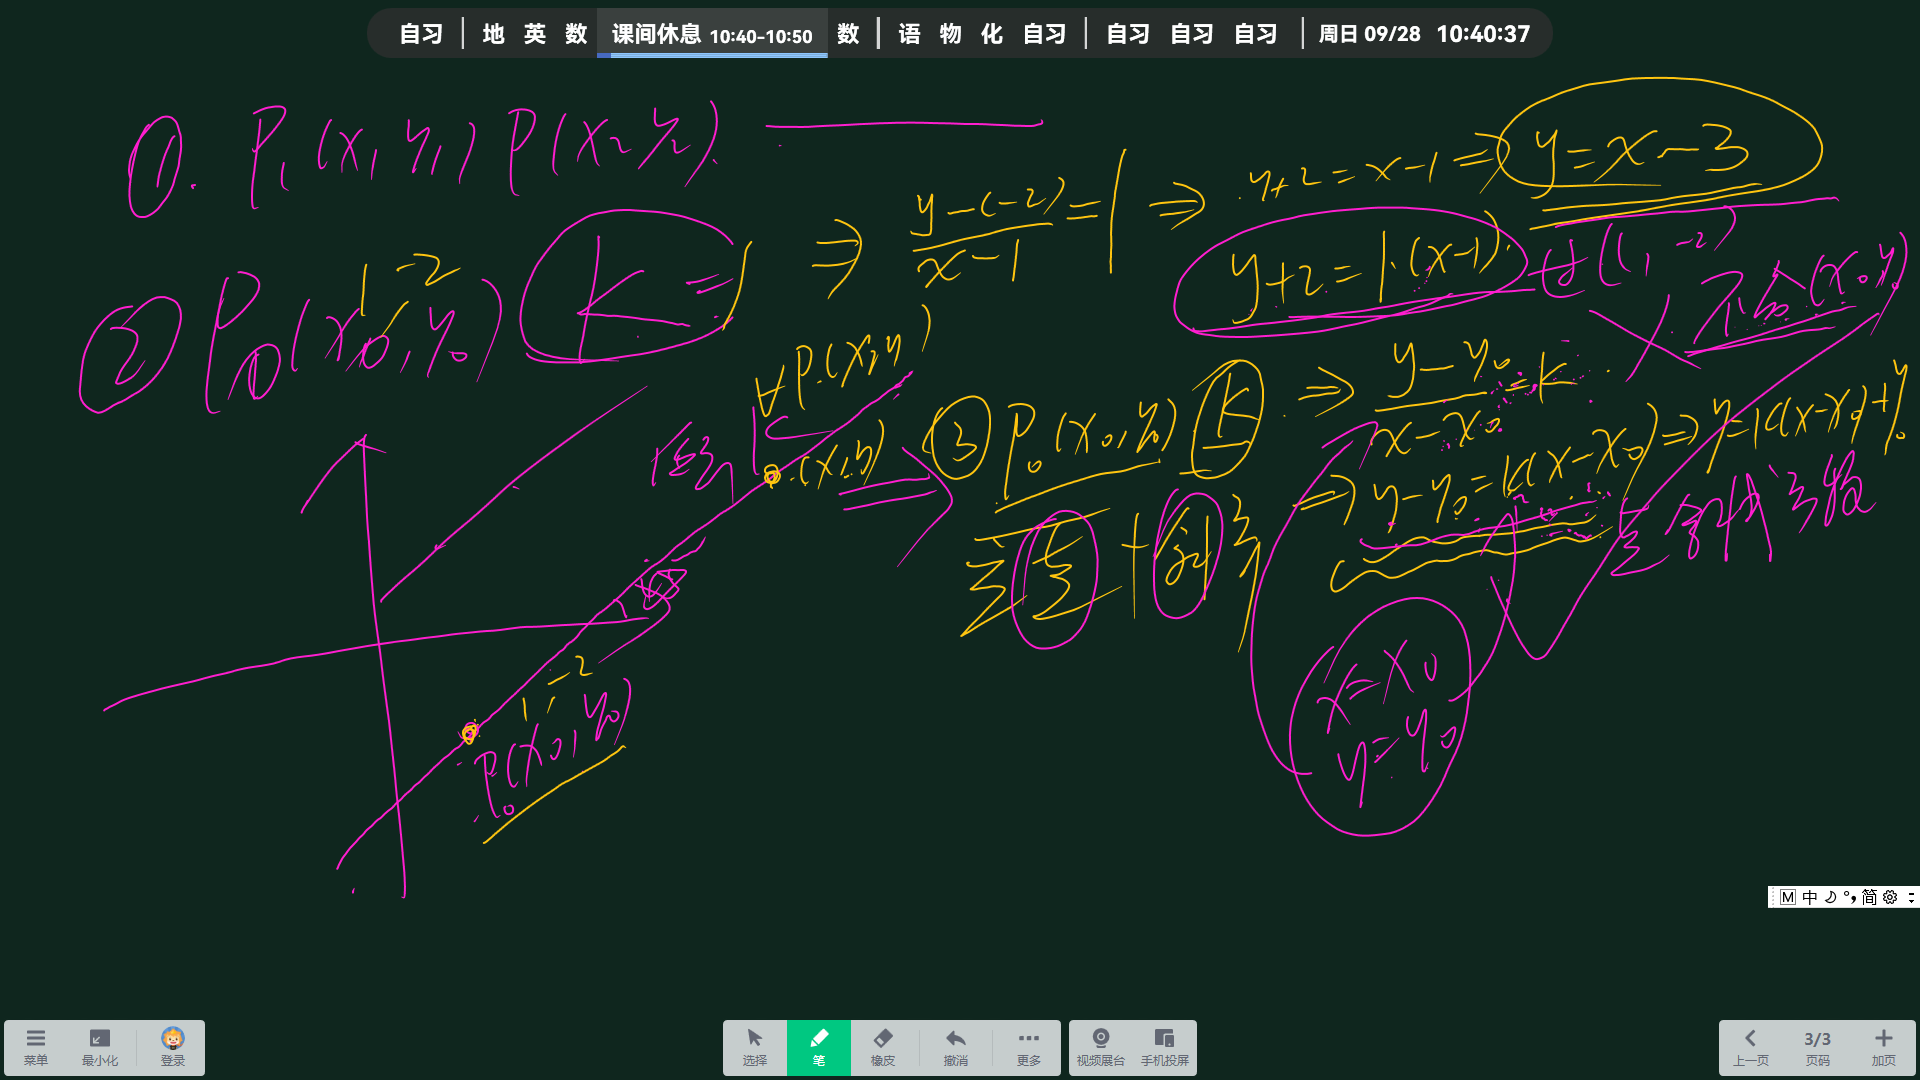 自习 | 地 英 数 课间休息 10:40-10:50 数 | 语 物 化 自习 | 自习 自习 自习 | 周日 09/28 10:40:37
①. P₁(x₁,y₁) P(x₂,y₂).
② P₀(x₀,y₀) K=1
1 -2
⇒ y-(-2)/x-1 = 1 ⇒ y+2=x-1 ⇒ y=x-3
y+2=1·(x-1).
(1,-2)
不含(x₀,y₀)
∀P.(x,y)
(x,y)
③ P₀(x₀,y₀) K ⇒ y-y₀/x-x₀ = K
⇒ y-y₀=K(x-x₀) ⇒ y=K(x-x₀)+y₀
1,-2
P₀(x₀,y₀)
x=x₀
y=y₀
M 中 简
菜单
最小化
登录
选择
笔
橡皮
撤消
更多
视频展台
手机投屏
上一页
3/3
页码
加页